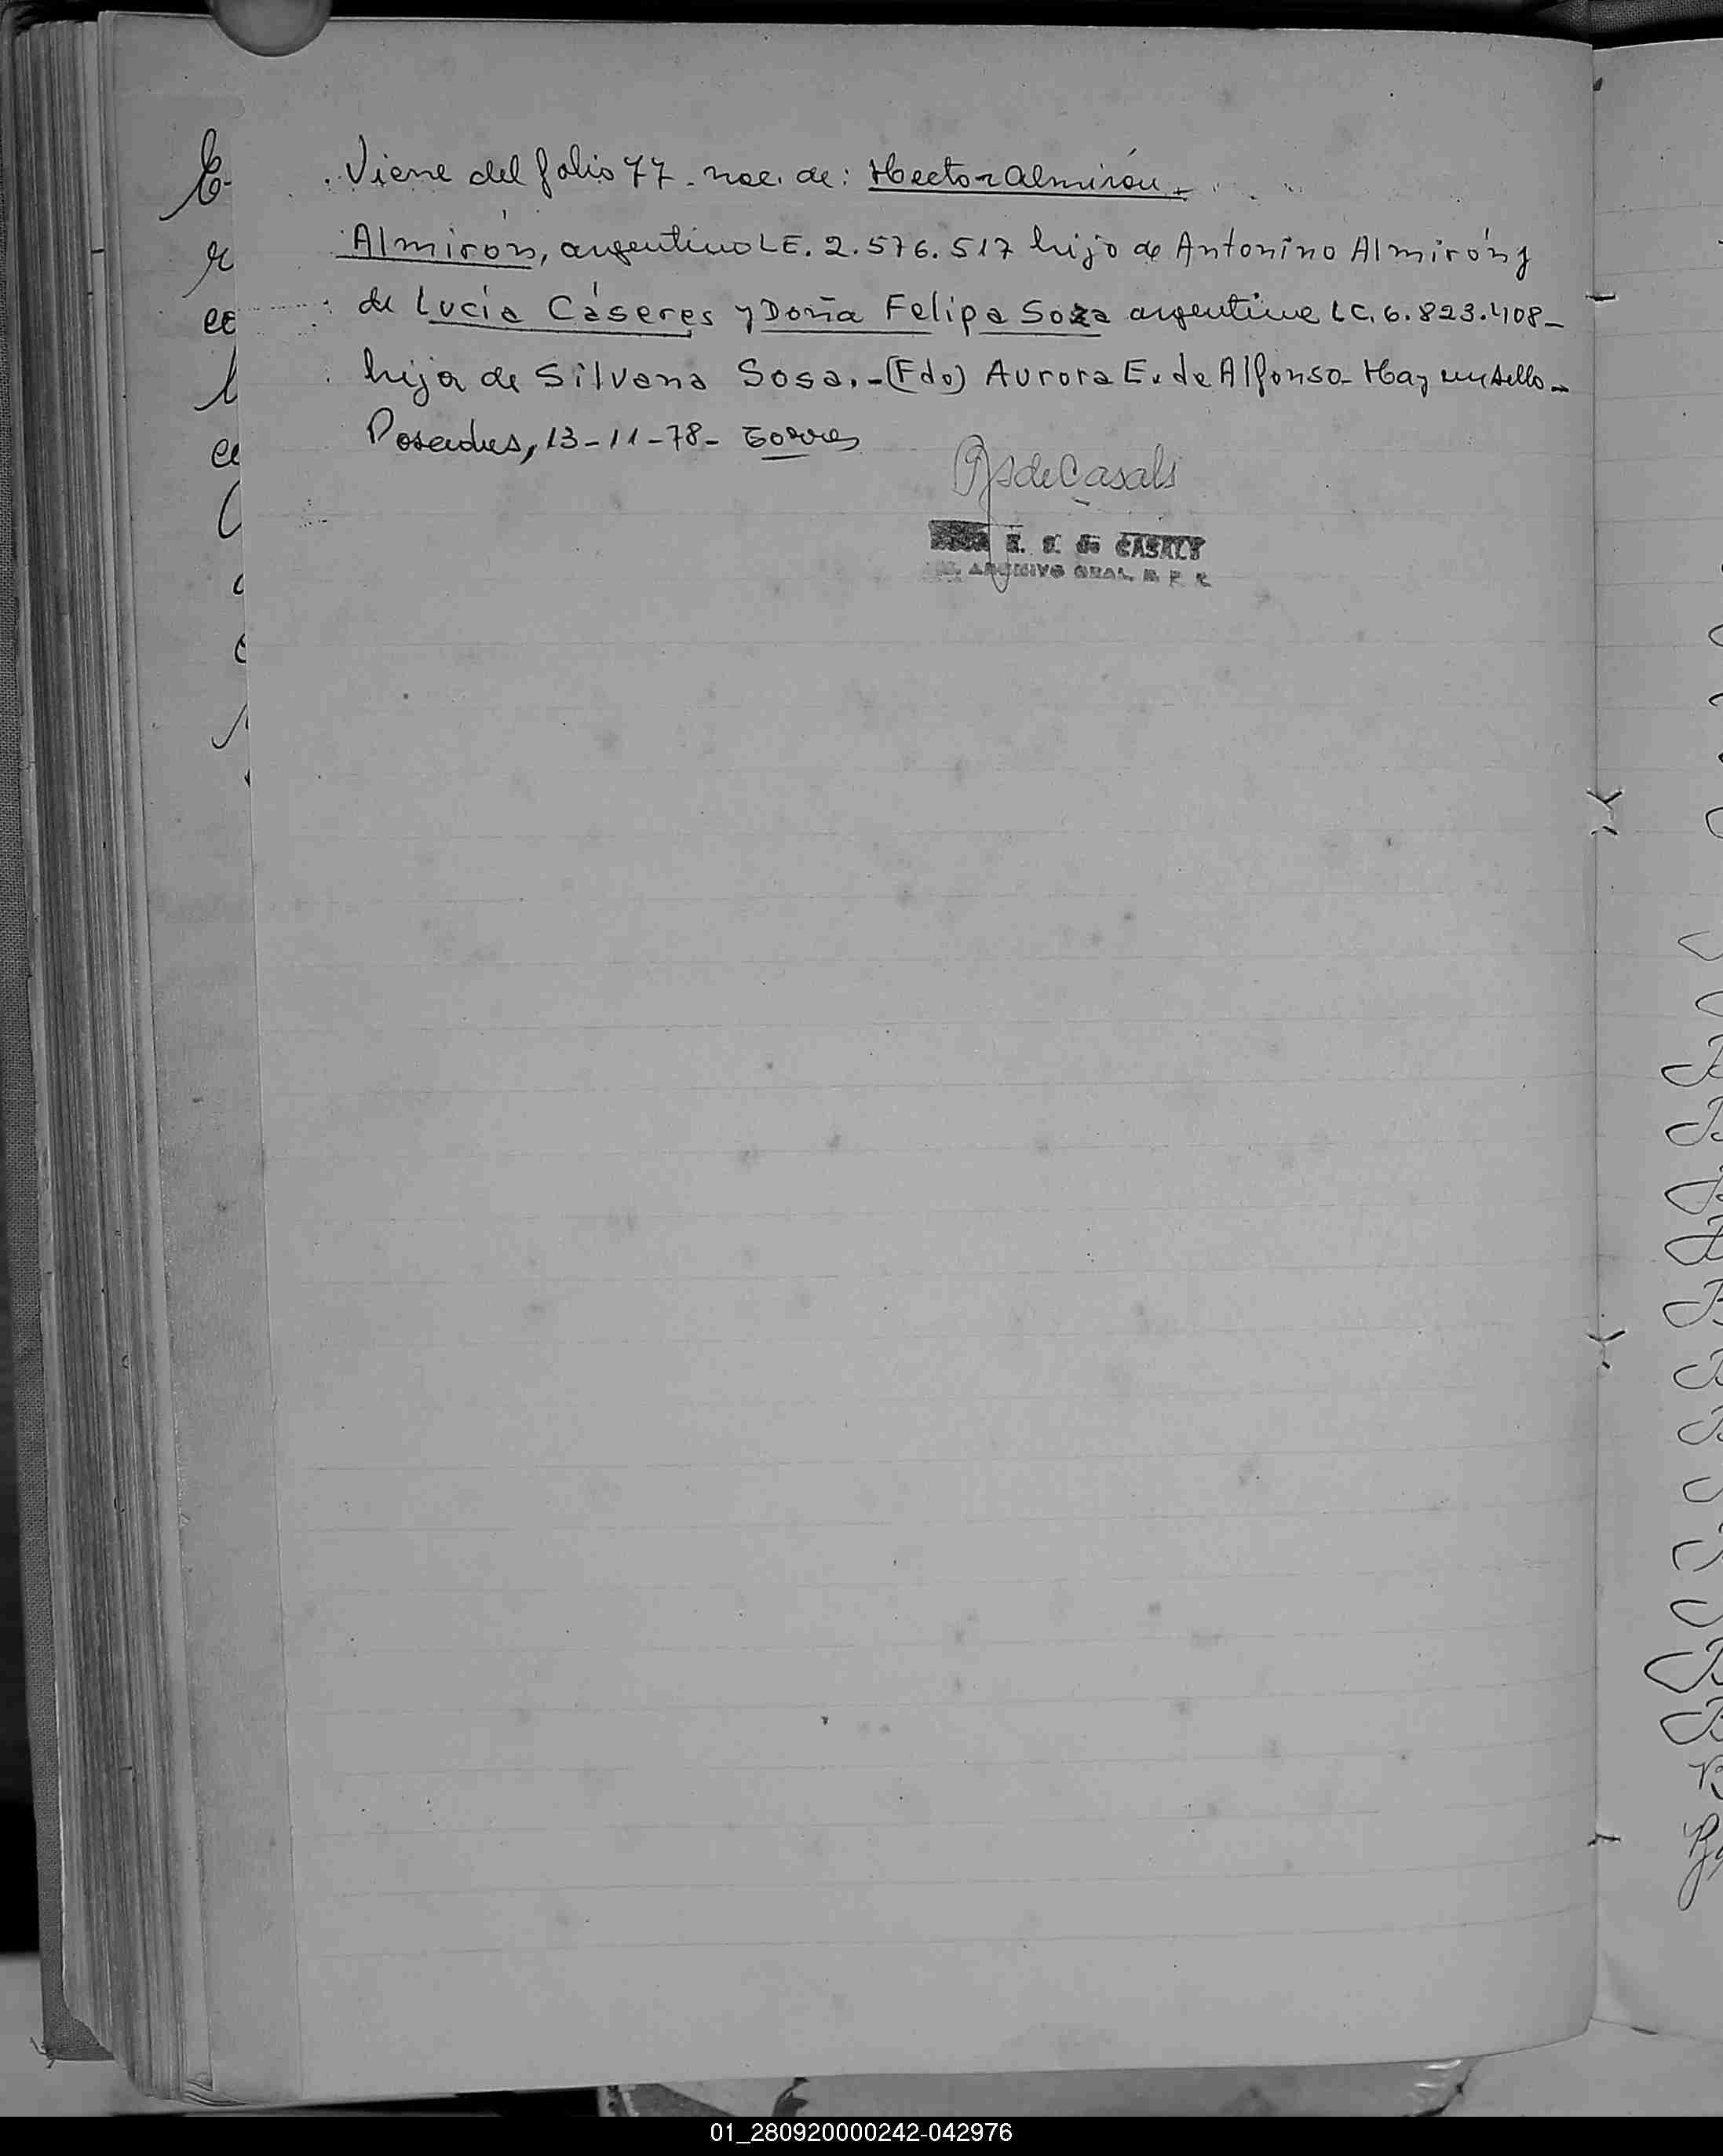 Viene del folio 77. nac. de: Hector Almirón.
Almirón, argentino LE. 2.576.517 hijo de Antonino Almirón y
de Lucía Cáseres y Doña Felipa Soza argentina LC. 6.823.408-
hija de Silvana Sosa.-(Fdo) Aurora E. de Alfonso- Hay un sello-
Posadas, 13-11-78- Torres
de Casals
E. S. de CASALS
ARCHIVO GRAL. R. P. R.
01_280920000242-042976